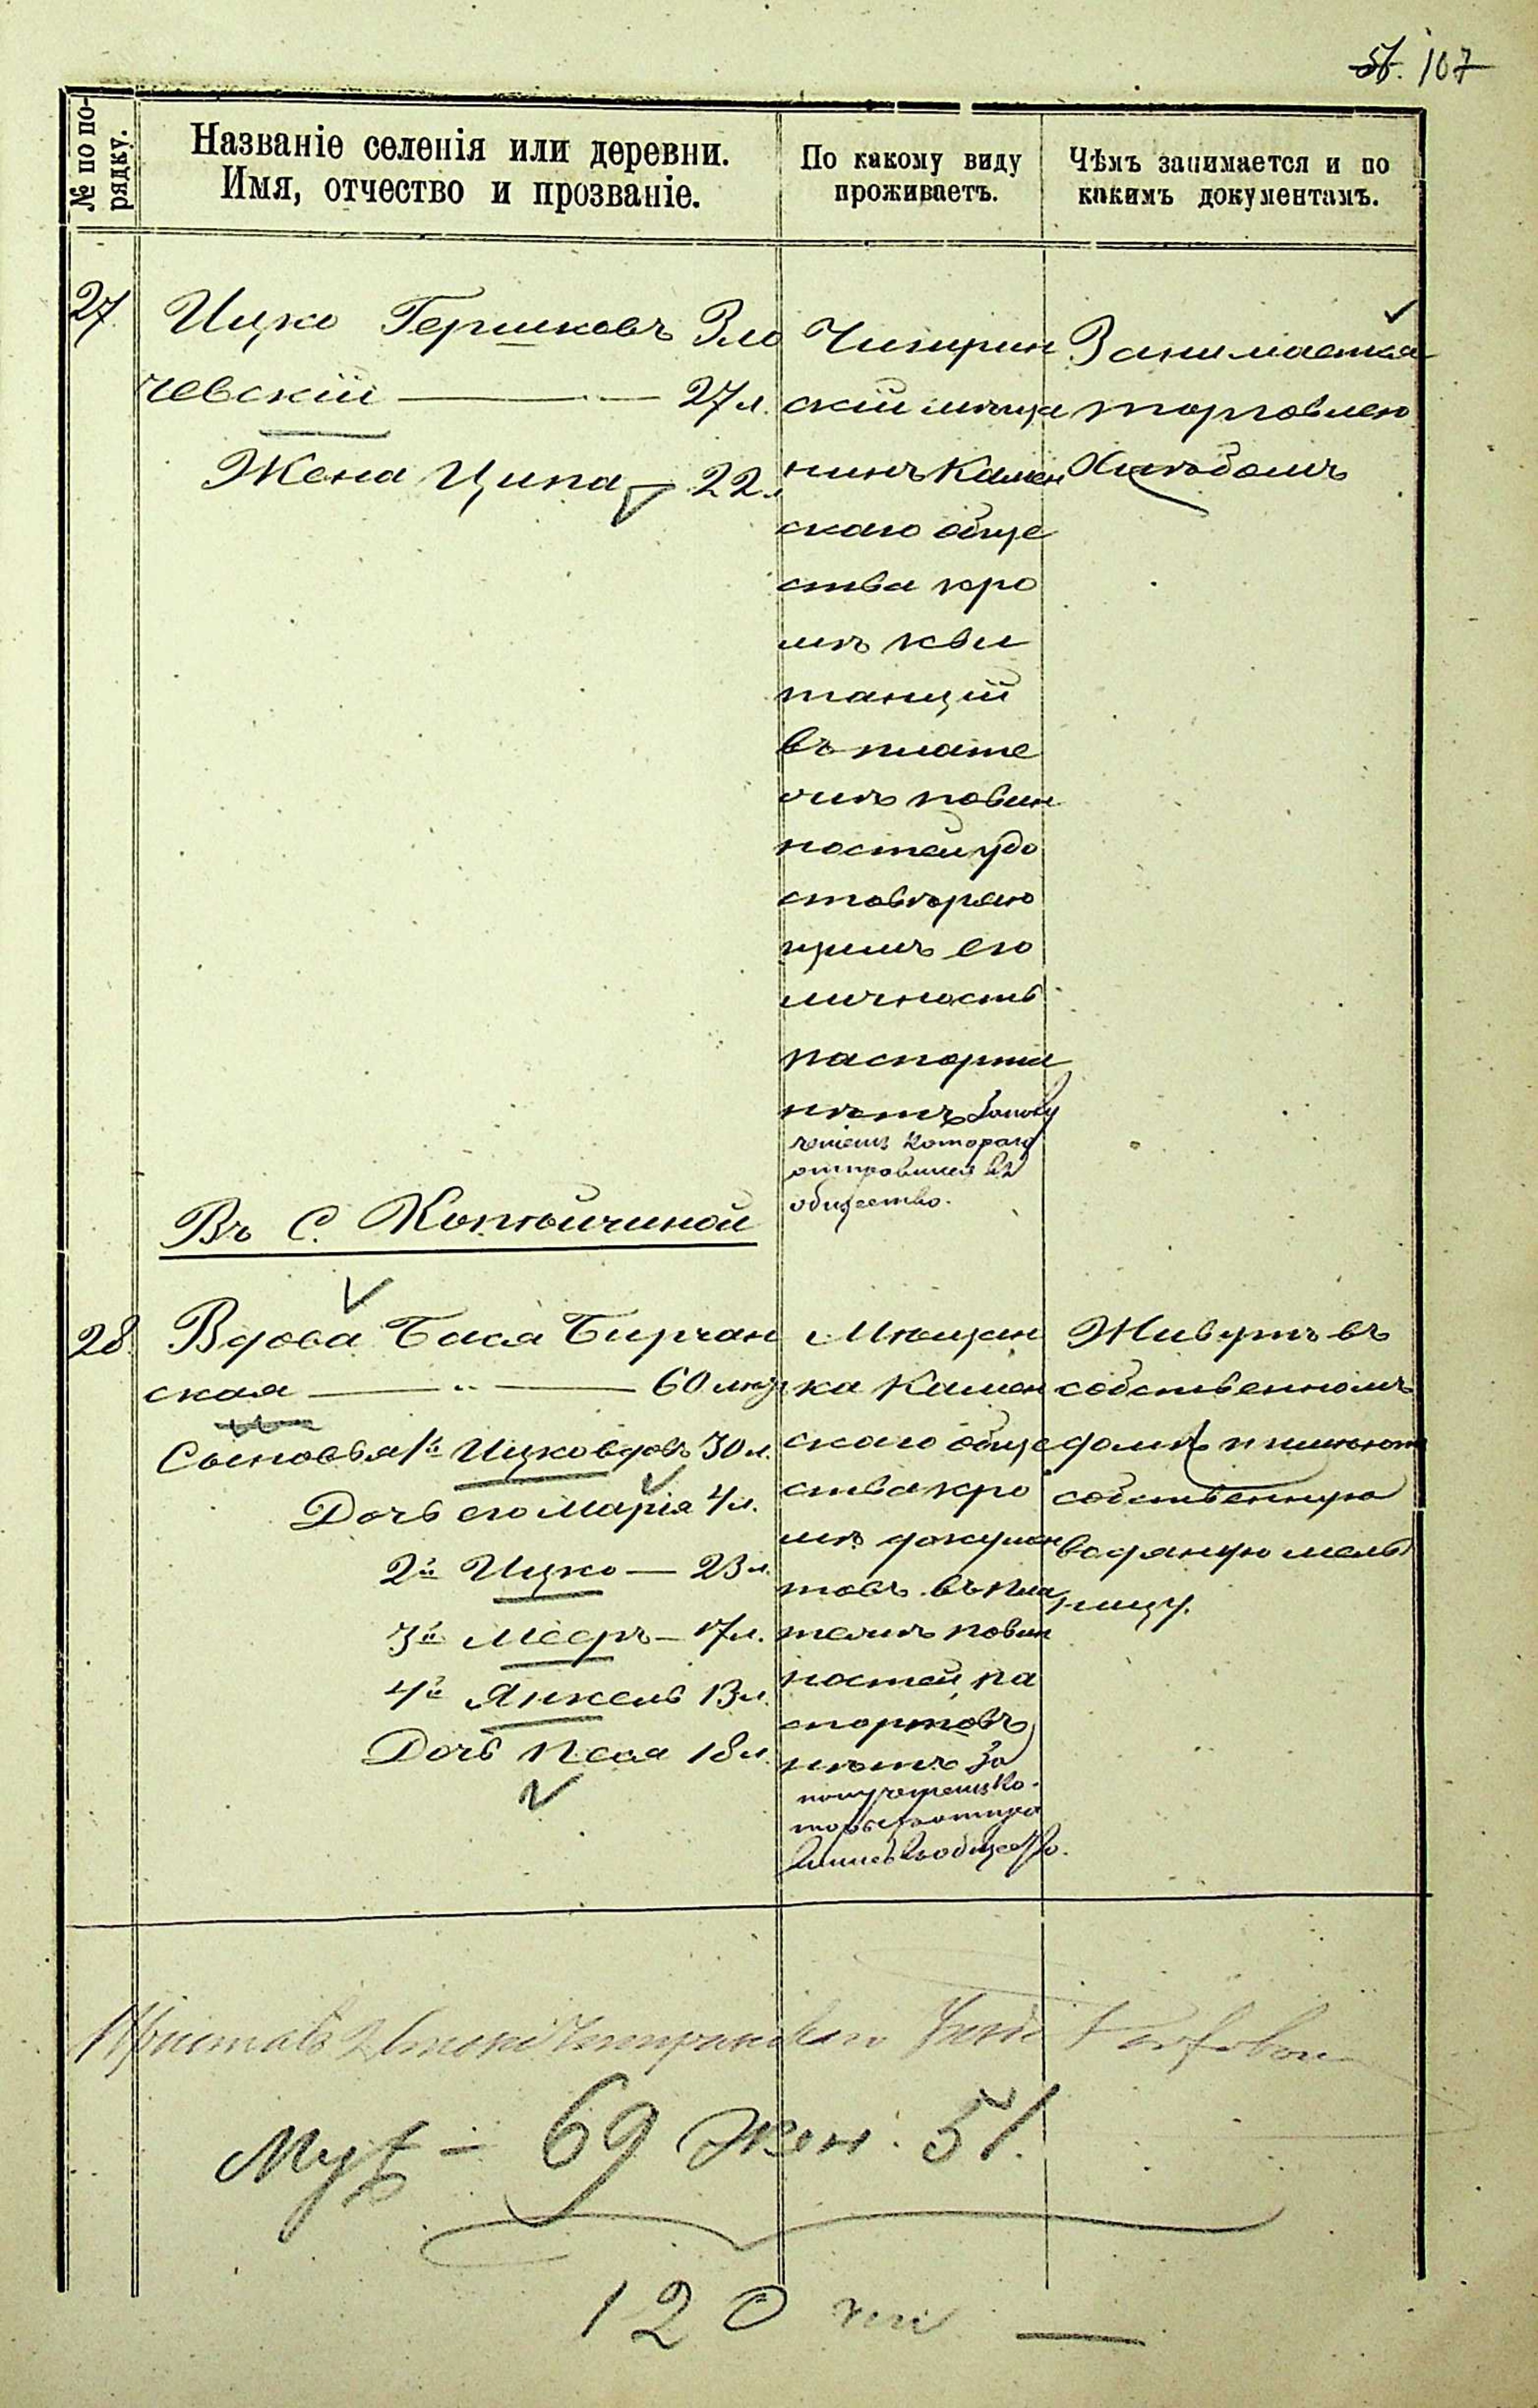 57. 107
№ по по-
рядку.
Названіе селенія или деревни.
Имя, отчество и прозваніе.
По какому виду
проживаетъ.
Чѣмъ занимается и по
какимъ документамъ.
27.
Ицко Гершковъ Зло
чевскій — 27 л.
Жена Ципа — 22 л
Чигирин
скій мѣща
нинъ Камен
скаго обще
ства кро
мѣ кви
танцій
въ плате
жѣ повин
ностей удо
стовѣряю
щихъ его
личность
паспорта
нѣтъ за полу
ченіемъ котораго
отправился въ
общество.
Занимается
торговлею
хлѣбомъ
Въ С. Копѣйчиной
28.
Вдова Бася Бирчан
ская — „ — 60 лѣтъ
Сыновья 1й Ицко вдовъ 30 л.
Дочь его Марія 4 л.
2й Ицко — 23 л.
3й Мееръ — 17 л.
4й Янкель 13 л.
Дочь Песя 18 л.
Мѣщан
ка Камен
скаго обще
ства кро
мѣ докумен
товъ въ пла
тежѣ повин
ностей, па
спортовъ
нѣтъ за
полученіемъ ко-
торыхъ отпра
вились въ общество.
Живутъ въ
собственномъ
домѣ и имѣютъ
собственную
водяную мель
ницу.
Приставъ 2 стана Чигиринскаго уѣзда
Муж — 69 Жен. 51.
120 —